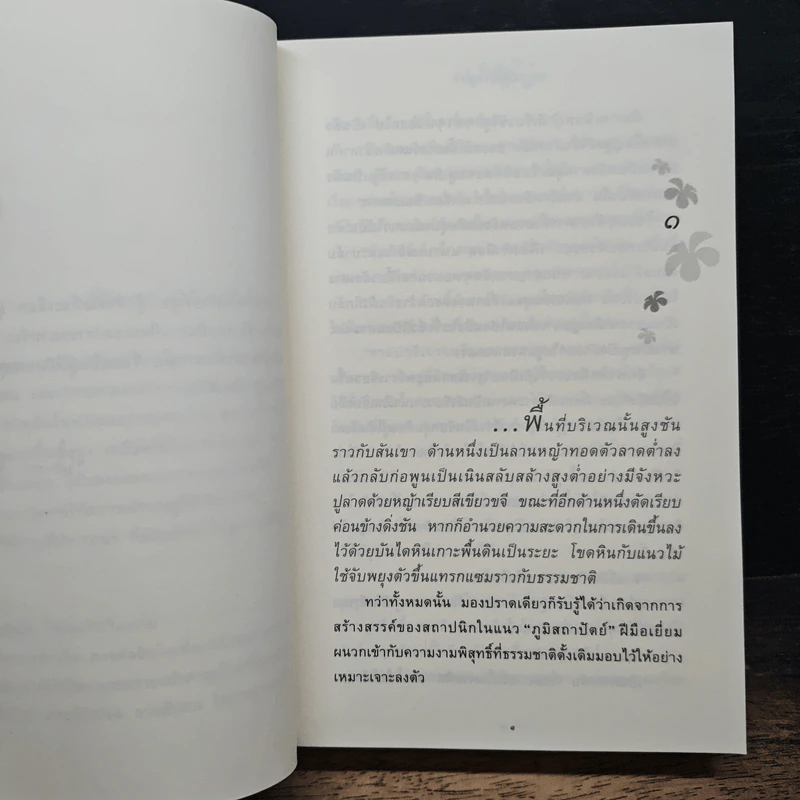 ๑
...พื้นที่บริเวณนั้นสูงชัน
ราวกับสันเขา ด้านหนึ่งเป็นลานหญ้าทอดตัวลาดต่ำลง
แล้วกลับก่อพูนเป็นเนินสลับสล้างสูงต่ำอย่างมีจังหวะ
ปูลาดด้วยหญ้าเรียบสีเขียวขจี ขณะที่อีกด้านหนึ่งตัดเรียบ
ค่อนข้างดิ่งชัน หากก็อำนวยความสะดวกในการเดินขึ้นลง
ไว้ด้วยบันไดหินเกาะพื้นดินเป็นระยะ โขดหินกับแนวไม้
ใช้จับพยุงตัวขึ้นแทรกแซมราวกับธรรมชาติ
ทว่าทั้งหมดนั้น มองปราดเดียวก็รับรู้ได้ว่าเกิดจากการ
สร้างสรรค์ของสถาปนิกในแนว “ภูมิสถาปัตย์” ฝีมือเยี่ยม
ผนวกเข้ากับความงามพิสุทธิ์ที่ธรรมชาติดั้งเดิมมอบไว้ให้อย่าง
เหมาะเจาะลงตัว